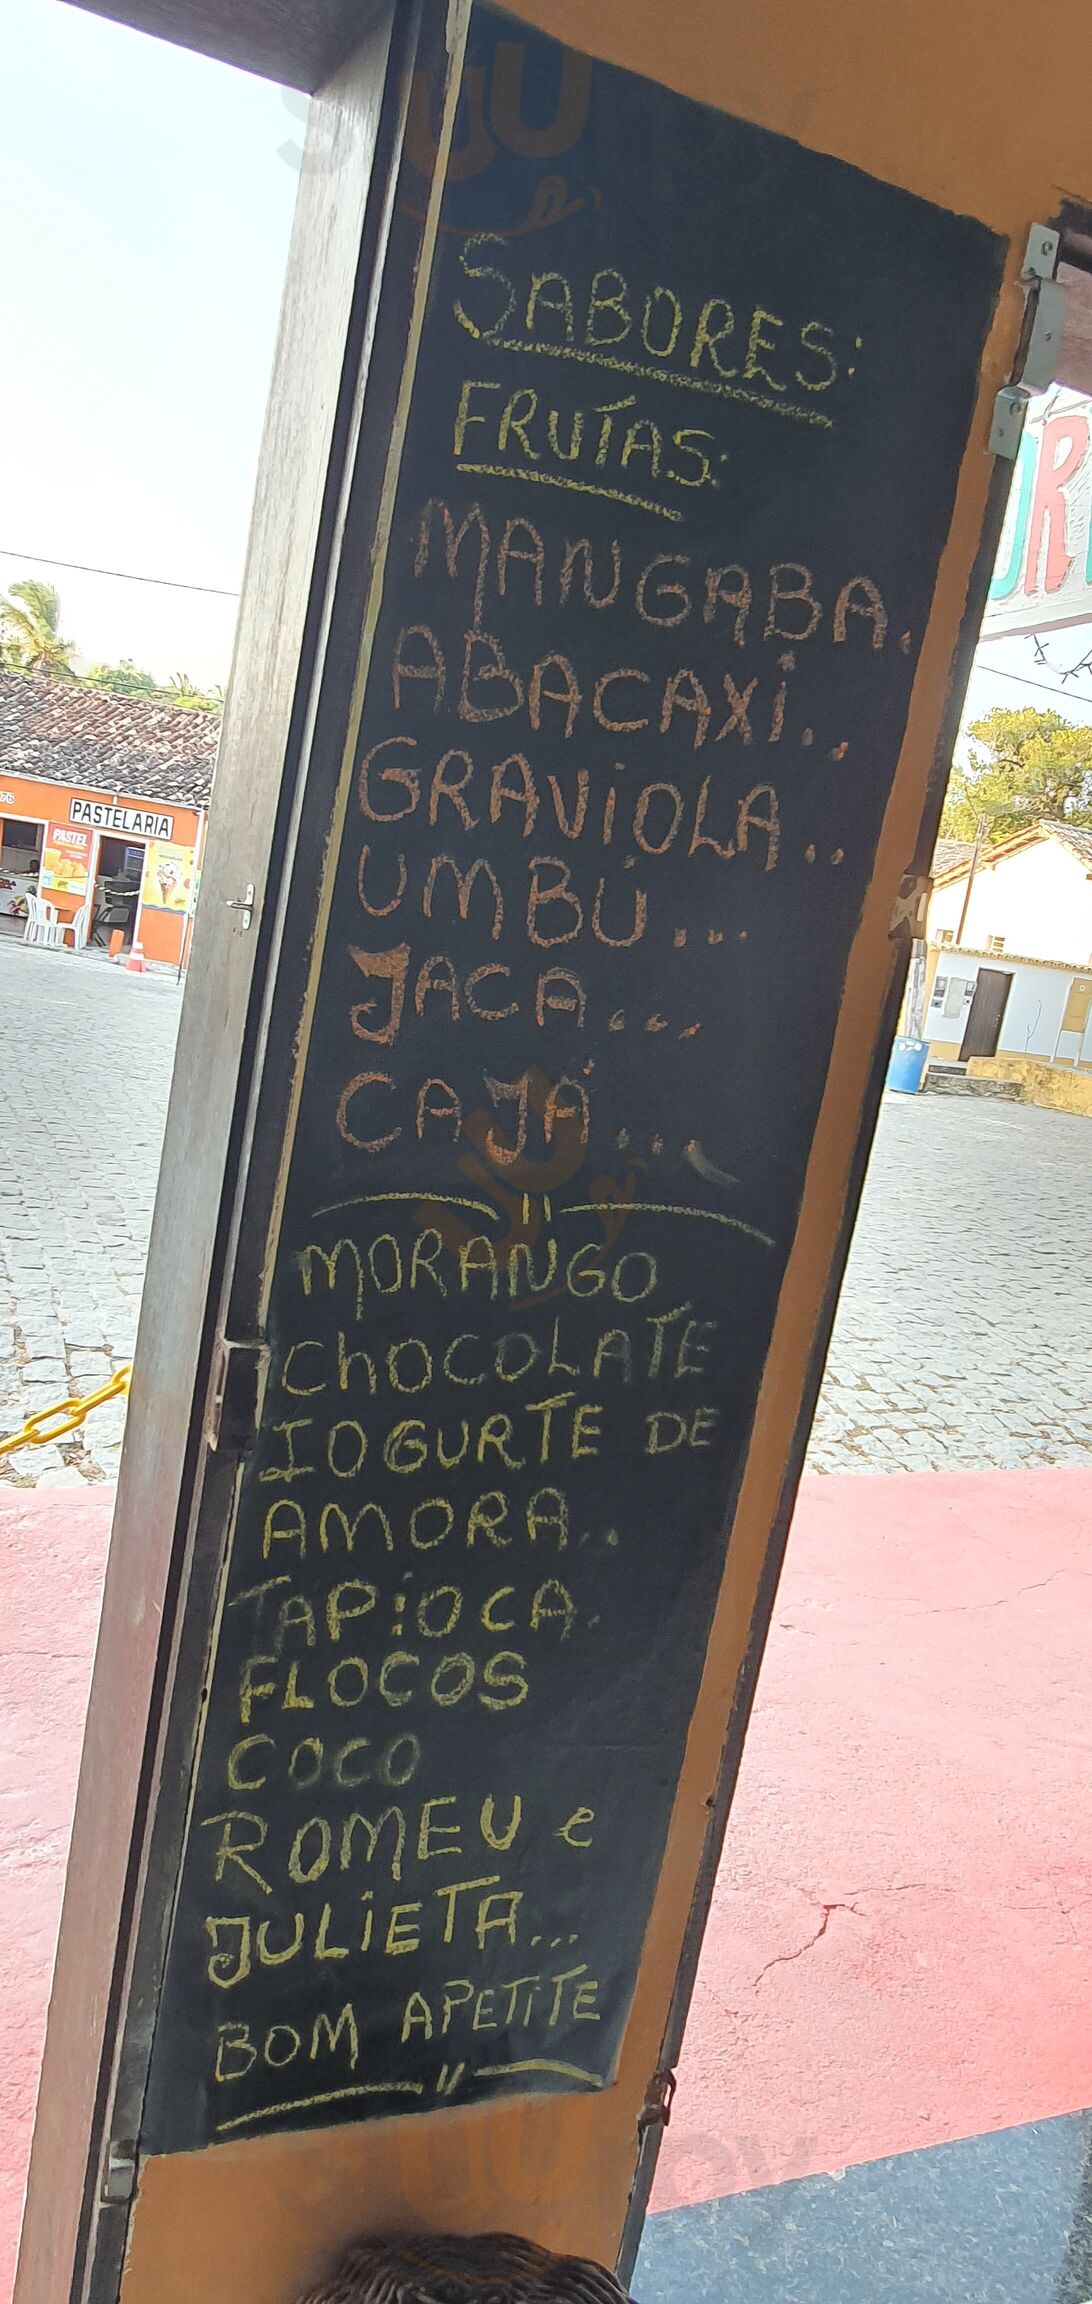 SABORES:
FRUTAS:
MANGABA.
ABACAXI..
GRAVIOLA..
UMBÚ...
JACA...
CAJÁ...
MORANGO
CHOCOLATE
IOGURTE DE
AMORA..
TAPIOCA.
FLOCOS
COCO
ROMEU e
JULIETA...
BOM APETITE
PASTELARIA
PASTEL